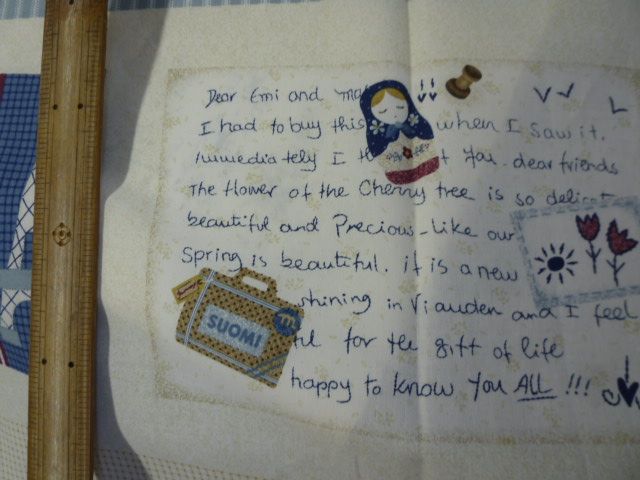 Dear Emi and
I had to buy this when I saw it.
Immediately I t you. dear friends
The flower of the Cherry tree is so delicat
beautiful and Precious-like our
Spring is beautiful. it is a new
shining in Vianden and I feel
ful for the gift of life
happy to know you ALL !!!
SUOMI